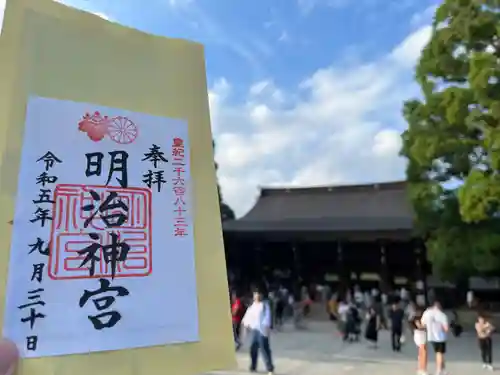 皇紀二千六百八十三年
奉拝
明治神宮
令和五年九月三十日